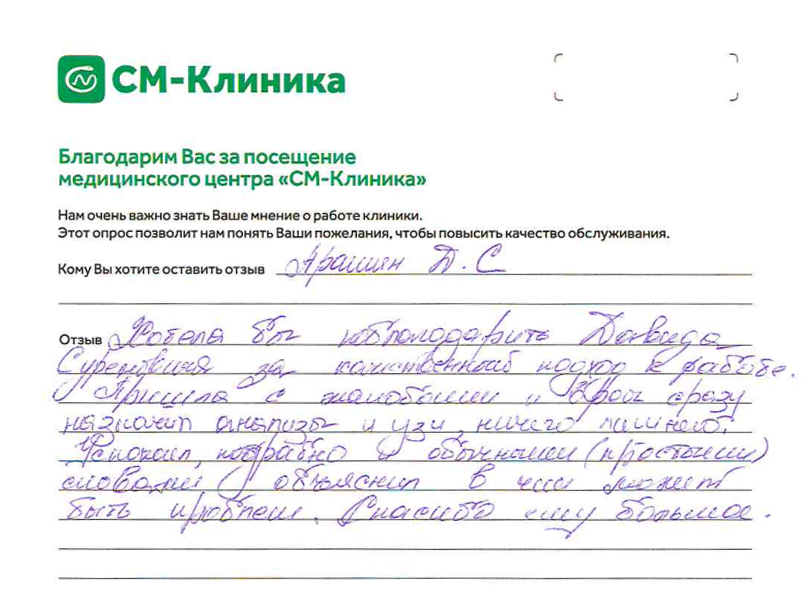 СМ-Клиника
Благодарим Вас за посещение
медицинского центра «СМ-Клиника»
Нам очень важно знать Ваше мнение о работе клиники.
Этот опрос позволит нам понять Ваши пожелания, чтобы повысить качество обслуживания.
Кому Вы хотите оставить отзыв Д. С
Отзыв Хотела бы поблагодарить Давида
Суреновича за качественный подход к работе.
Пришла с жалобами и врач сразу
назначил анализы и узи, ничего лишнего.
Успокоил, подробно и обычными (простыми)
словами объяснил в чем может
быть проблем. Спасибо ему большое.